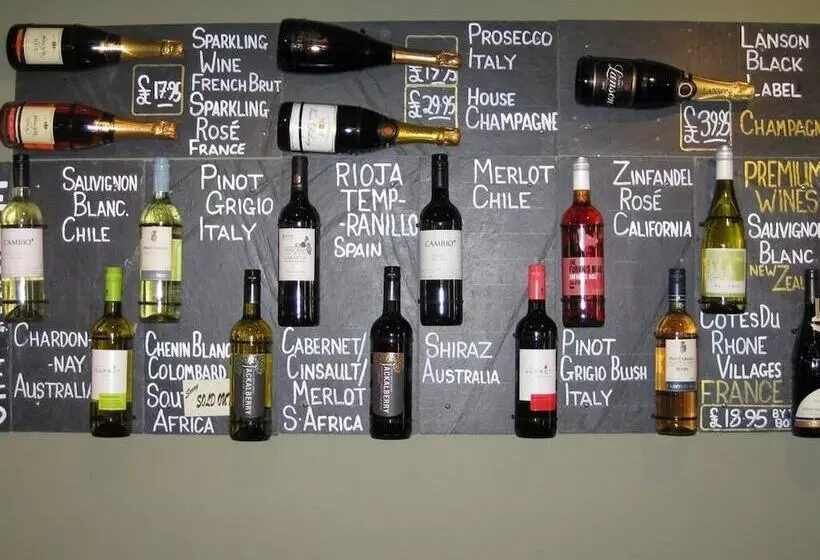 SPARKLING
WINE
FRENCH BRUT
£17.95
SPARKLING
ROSÉ
FRANCE
PROSECCO
ITALY
HOUSE
CHAMPAGNE
£29.95
LANSON
BLACK
LABEL
CHAMPAGN
£39.95
Lanson
LANSON
SAUVIGNON
BLANC.
CHILE
PINOT
GRIGIO
ITALY
RIOJA
TEMP-
-RANILLO
SPAIN
MERLOT
CHILE
ZINFANDEL
ROSÉ
CALIFORNIA
PREMIUM
WINES
SAUVIGNON
BLANC
NEW ZEA
CAMBIO
CAMBIO
CHARDON-
-NAY
AUSTRALIA
CHENIN BLANC
COLOMBARD
SOU
AFRICA
Sorry
SOLD OUT
JACKALBERRY
CABERNET/
CINSAULT/
MERLOT
S. AFRICA
JACKALBERRY
SHIRAZ
AUSTRALIA
PINOT
GRIGIO BLUSH
ITALY
COTES DU
RHONE
VILLAGES
FRANCE
£18.95